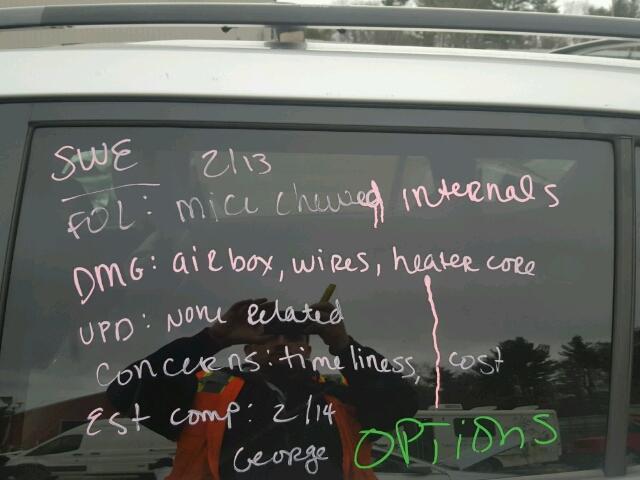 SWE 2/13
FOL: mice chewed internals
DMG: airbox, wires, heater core
UPD: None Related
Concerns: timeliness, cost
Est comp: 2/14
George OPTiOnS